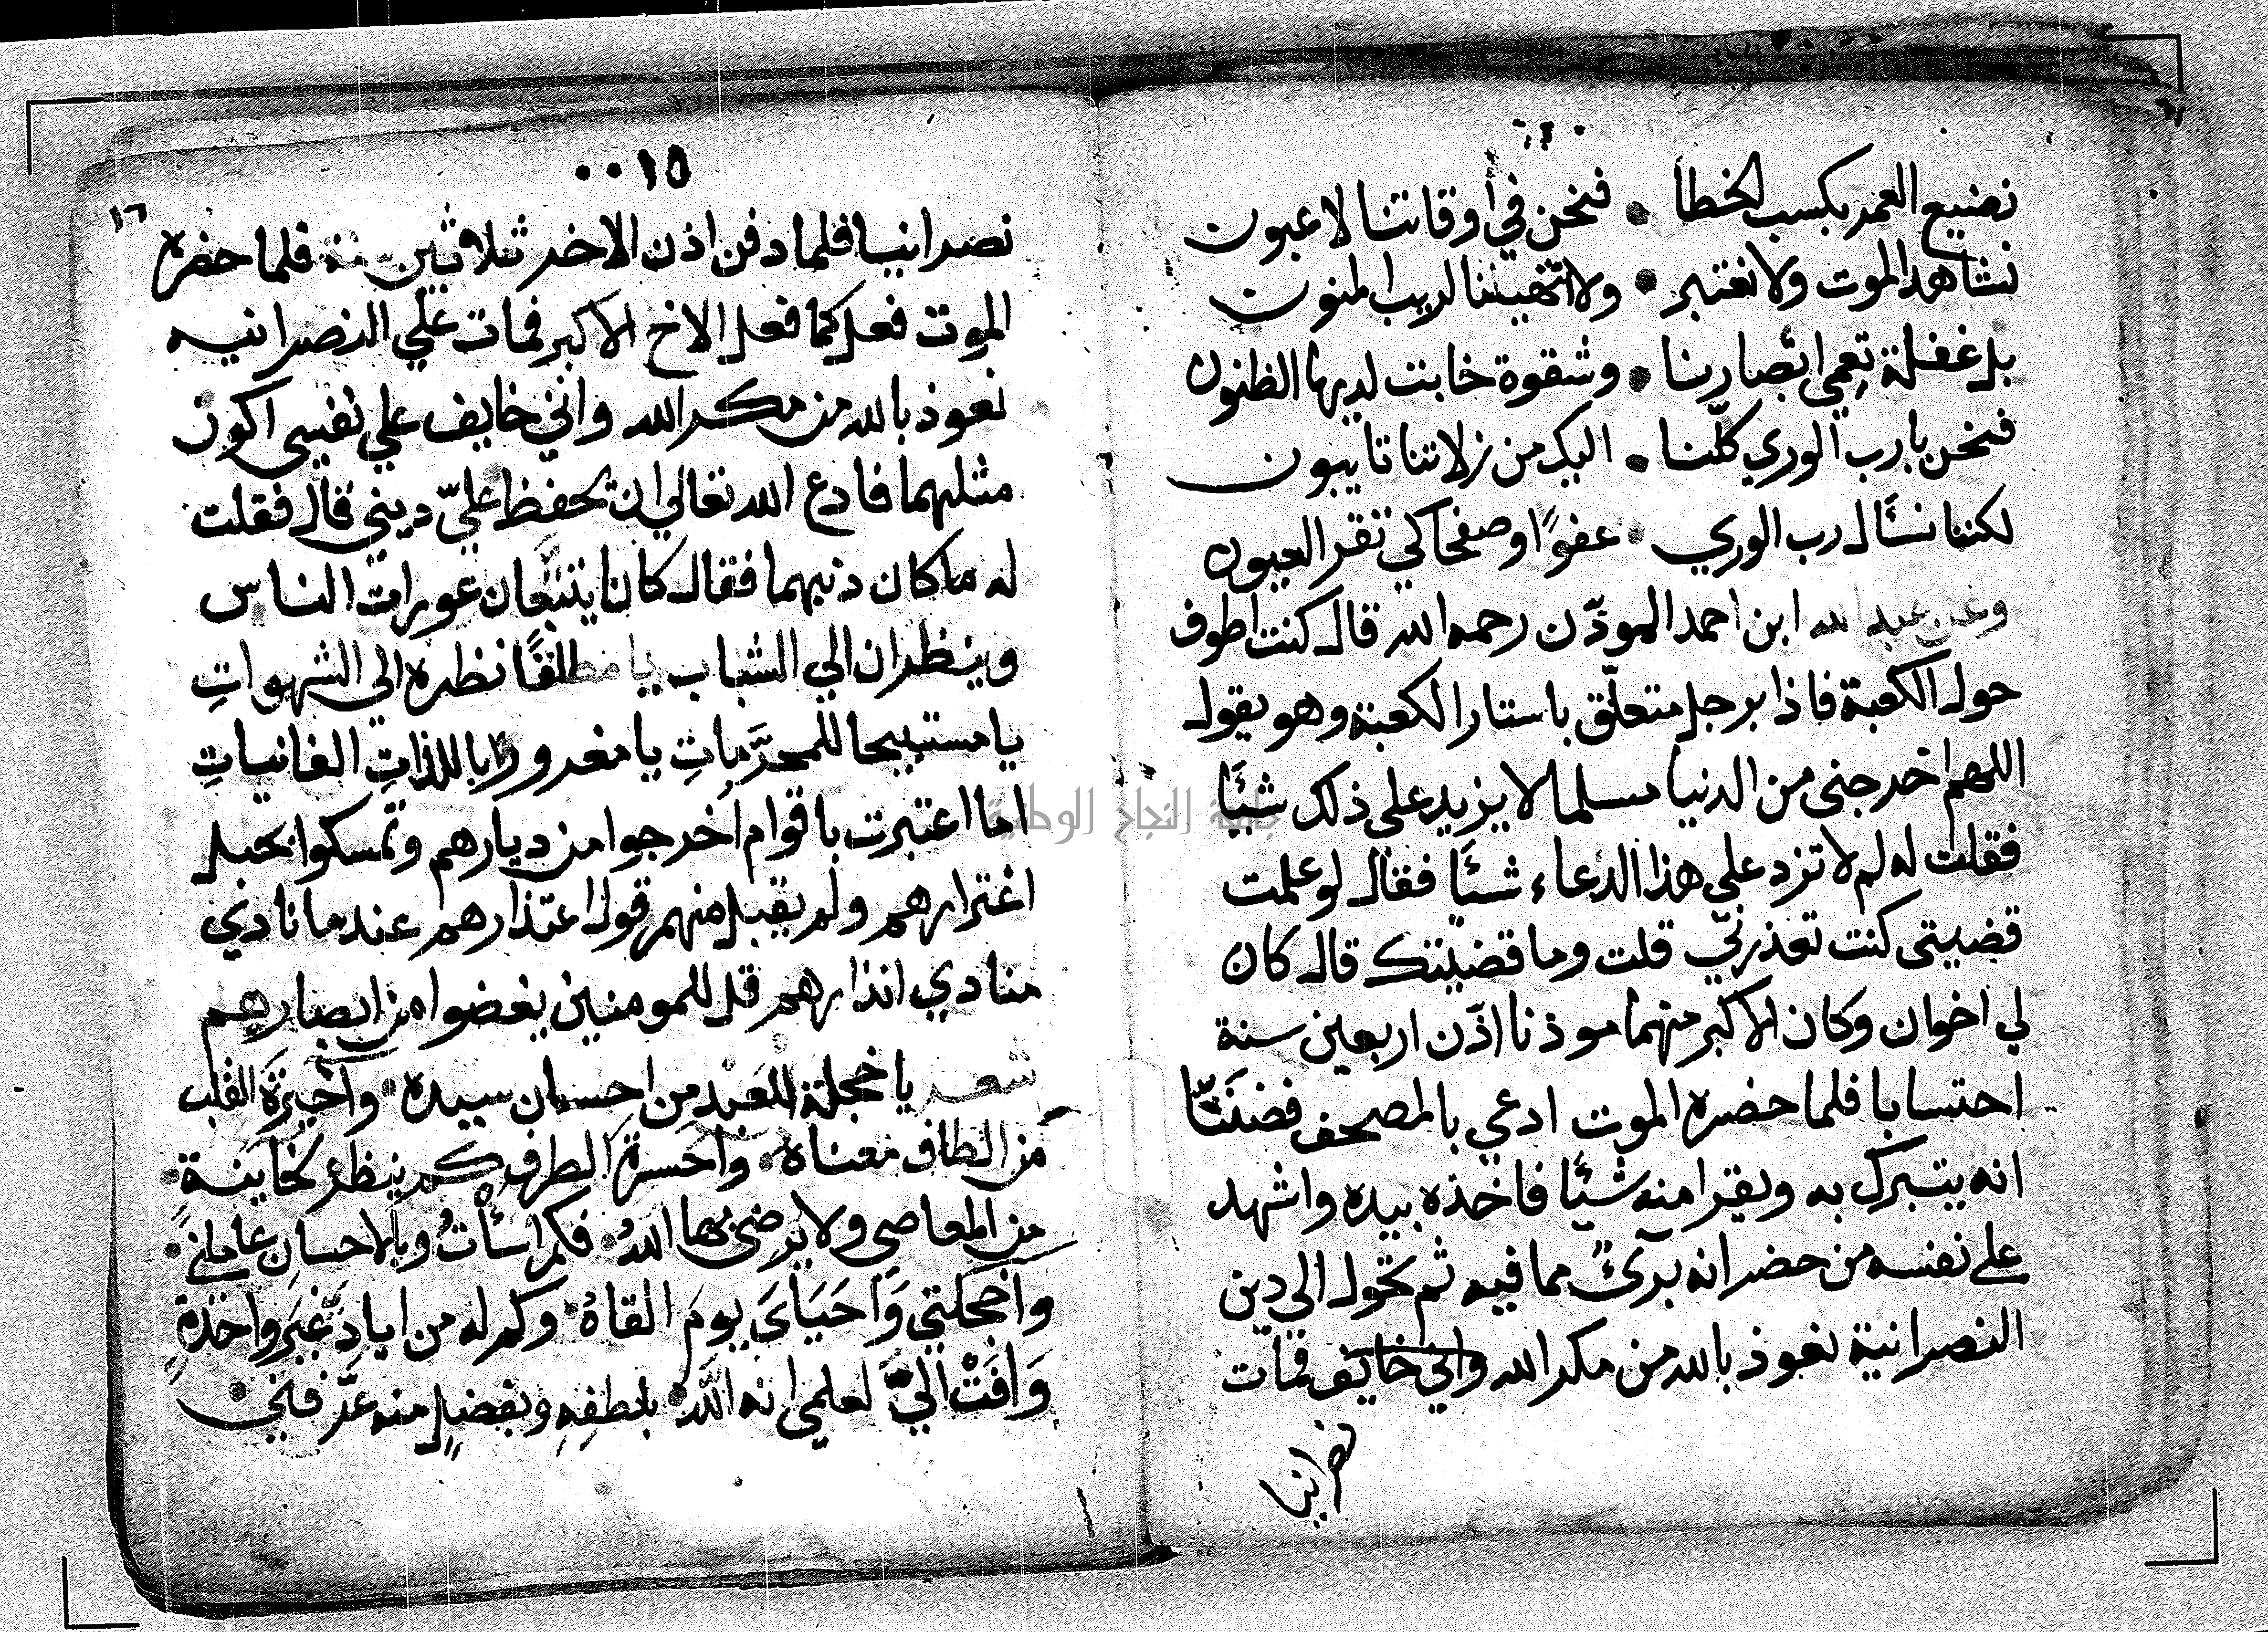 نضيع العمر بكسب الخطا • فنحن في أوقاتنا لاعبون
نشاهد الموت ولا نعتبر • ولا تهيئنا لريب المنون
بل غفلة تعمي ابصارنا • وشقوة خابت لديها الظنون
فنحن يا رب الوري كلّنا • اليك من زلاتنا تايبون
لكننا نسأل رب الوري • عفوًا وصفحا كي تقر العيون
وعن عبد الله ابن احمد الموذّن رحمه الله قال كنت اطوف
حول الكعبة فاذا برجل متعلّق باستار الكعبة وهو يقول
اللهم اخرجني من الدنيا مسلما لا يزيد علي ذلك شيًا
فقلت له لم لا تزد علي هذا الدعاء شيًا فقال لو علمت
قضيتي كنت تعذرني قلت وما قضيّتك قال كان
لي اخوان وكان الاكبر منهما موذنا اذّن اربعين سنة
احتسابا فلما حضره الموت ادعي بالمصحف فضننّا
انه يتبرك به ويقرا منه شيًا فاخذه بيده واشهد
علي نفسه من حضر انه برئ مما فيه ثم تحول الي دين
النصرانية نعوذ بالله من مكر الله واني خايف فمات
نصرانيا
٠٠١٥
١٦
نصرانيا فلما دفن اذن الاخر ثلاثين سنة فلما حضره
الموت فعل كما فعل الاخ الاكبر فمات علي النصرانيه
نعوذ بالله من مكر الله واني خايف علي نفسي اكون
مثلهما فادع الله تعالي ان يحفظ عليّ ديني قال فقلت
له ما كان ذنبهما فقال كانا يتتبّعان عورات الناس
وينظران الي الشباب يا مطلقًا نظره الي الشهواتِ
يا مستبيحا للمحرَّماتِ يا مغرورا باللذاتِ الفانياتِ
اما اعتبرت باقوام اخرجوا من ديارهم وتمسكوا بحبل
اغترارهم ولم يقبل منهم قول اعتذارهم عند ما نادي
منادي انذارهم قل للمومنين يغضوا من ابصارهم
شعر يا خجلة العبد من احسان سيده • وا حيرة القلب
من الطاف معناه • وا حسرة الطرف كم ينظر لخاينة •
من المعاصي ولا يرضي بها اللهُ • فكم اسأتُ وبالاحسان عاملني •
وا خجلتي وَا حَيَاىَ يومَ القاهُ • وكم له من ايادٍ غيرِ واحدةٍ
وَافَتْ اليَّ لعلمي انه اللهُ • بلطفِهِ وبفضلٍ منه عرّفني •